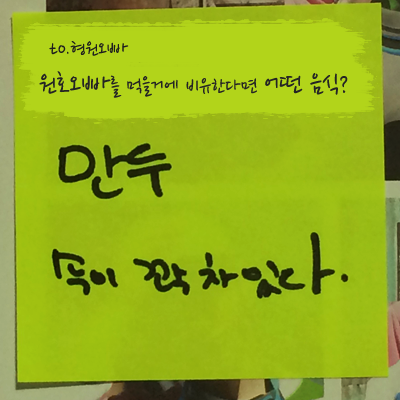 to.형원오빠
원호오빠를 먹을거에 비유한다면 어떤 음식?
만두
속이 꽉 차있다.